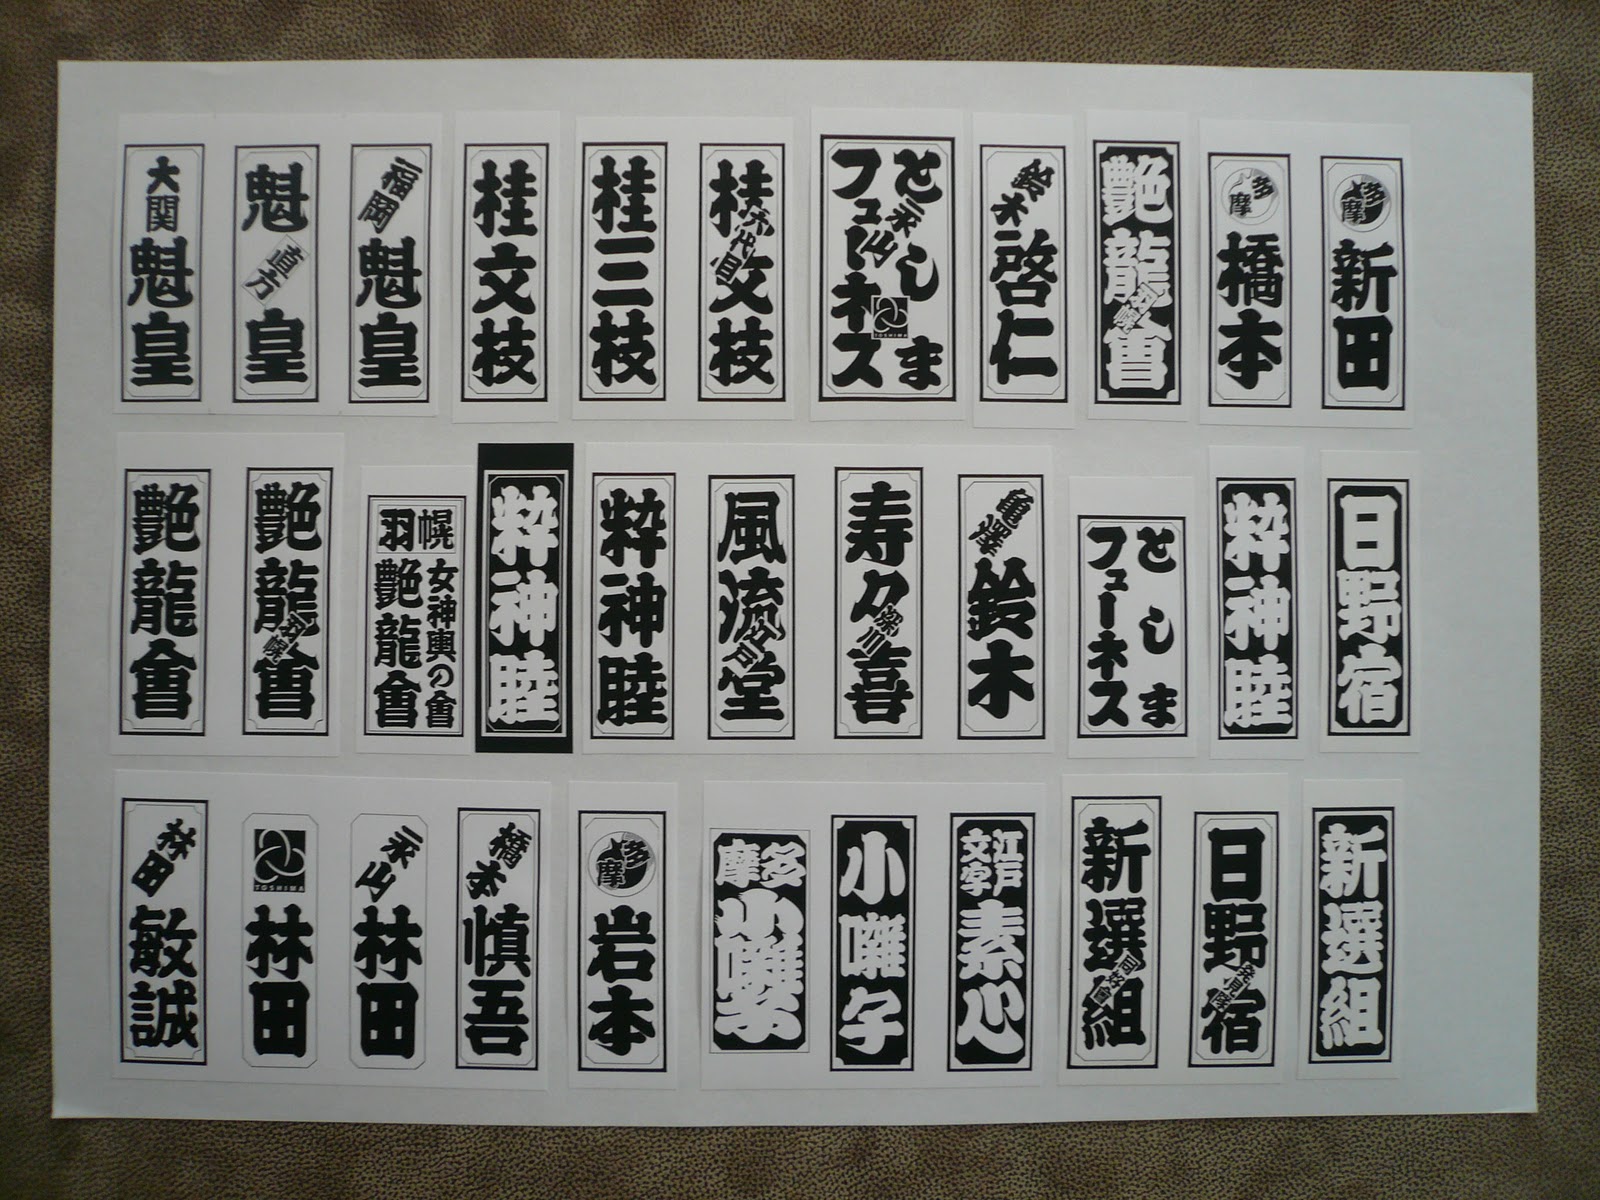 大関 魁皇
魁皇 直方
福岡 魁皇
桂文枝
桂三枝
桂文枝 六代目
としま
フューネス
永山
TOSHIMA
鈴木 啓仁
艶龍會 羽幌
多摩 橋本
多摩 新田
艶龍會
艶龍會 羽幌
羽幌
女神輿の會
艶龍會
粋神睦
粋神睦
風流堂 江戸
寿々喜 深川
亀澤 鈴木
としま
フューネス
粋神睦
日野宿
林田 敏誠
TOSHIMA
林田
永山 林田
橋本 慎吾
多摩 岩本
多摩 小囃子
小囃子
江戸文字 素心
新選組 同好會
日野宿 発見隊
新選組